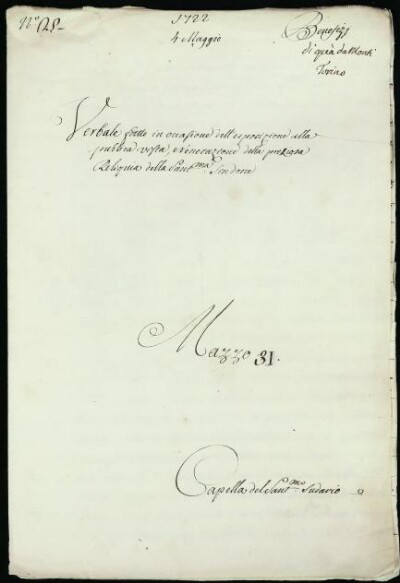 N.° 25.
1722
4 Maggio
Benefizj
di quà da Monti
Torino
Verbale fatto in occasione dell'esposizione alla
pubblica vista, e venerazione della preziosa
Reliquia della Sant.ma Sindone
Mazzo 31.
Capella del Sant.mo Sudario